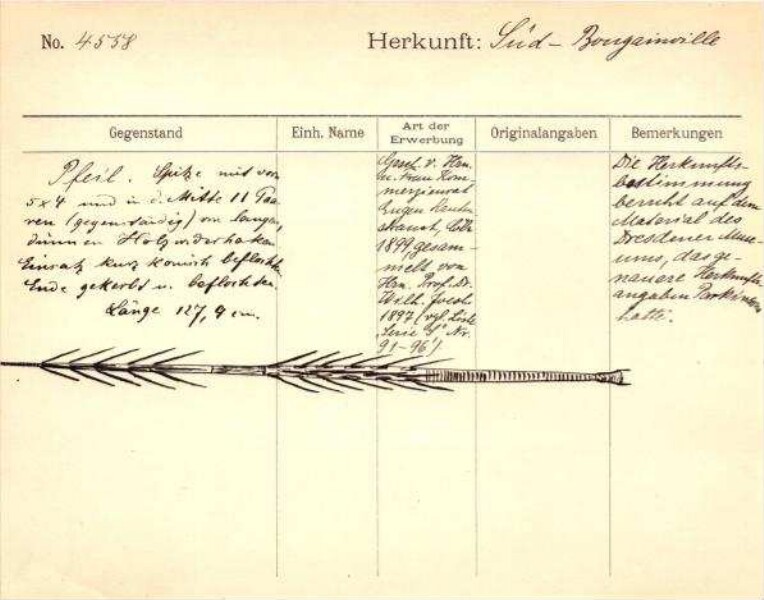 No. 4558 Herkunft: Süd - Bougainville
Gegenstand
Einh. Name
Art der
Erwerbung
Originalangaben
Bemerkungen
Pfeil. Spitze mit vorn
5 x 4 und in d. Mitte 11 Paa-
ren (gegenständig) von langen,
dünnen Holzwiderhaken.
Einsatz kurz konisch beflochten.
Ende gekerbt u. beflochten.
Länge 127,9 cm.
Gesch. v. Hrn.
u. Frau Kom-
merzienrat
Eugen Rauten-
strauch, Cöln
1899, gesam-
melt von
Hrn. Prof. Dr.
Wilh. Joest
1897 (vgl. Liste
"Serie S" Nr.
91-96)
Die Herkunfts-
bestimmung
beruht auf dem
Material des
Dresdener Muse-
ums, das ge-
nauere Herkunfts-
angaben Parkinsons
hatte.